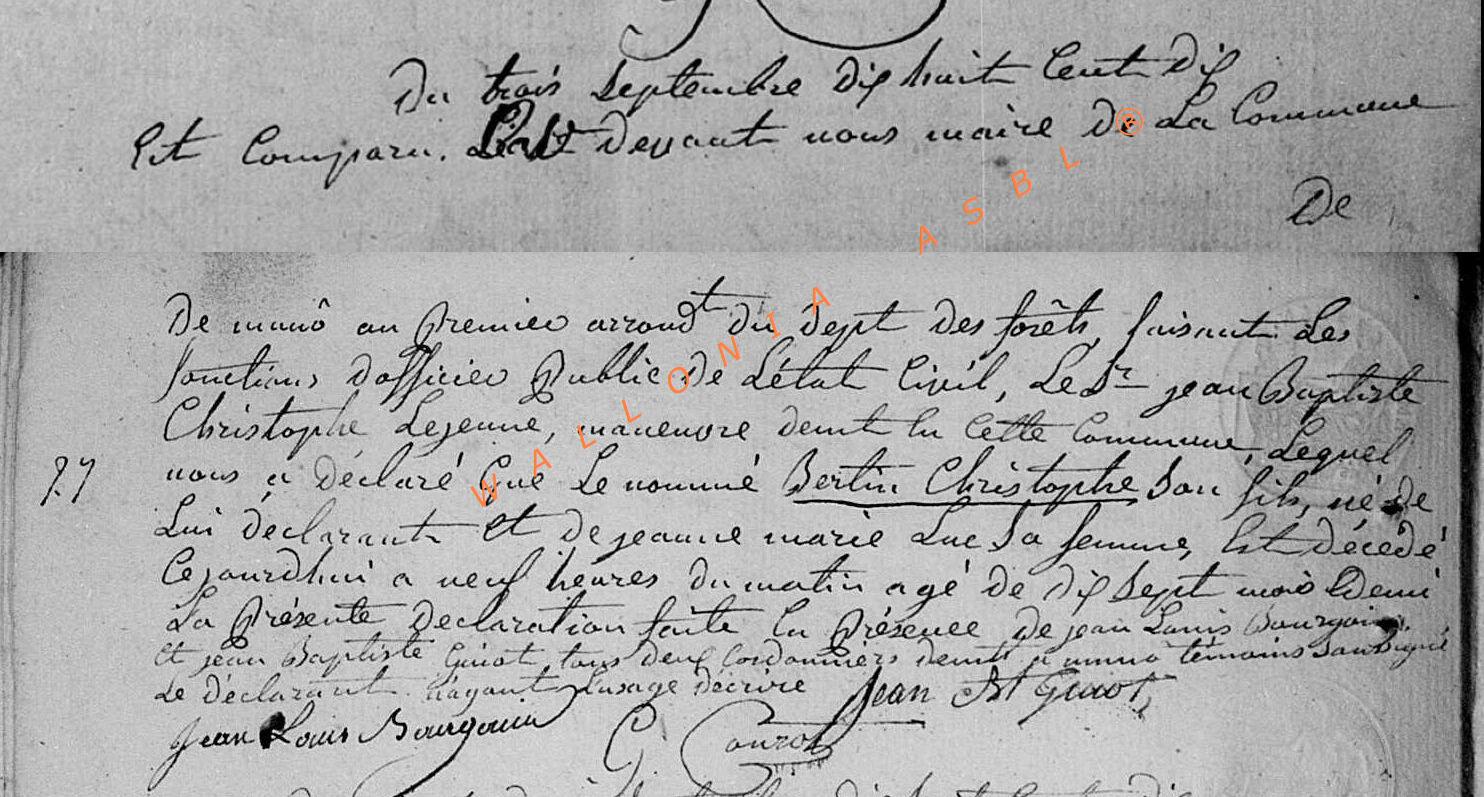 Du trois Septembre dix huit Cent dix
Est Comparu. Pardt devant nous maire de La Commune
De
De munô au Premier arrondt du Dept des forêts, faisant Les
fonctions dofficier Public De L'état Civil, Le Sr jean Baptiste
Christophe Lejeune, maneuvre demt En Cette Commune, Lequel
27 nous a Déclaré Que Le nommé Bertin Christophe Son fils, né de
Lui déclarant et de jeanne marie Luc Sa femme, Est décédé
Cejourdhui a neuf heures Du matin agé de Dix Sept mois & Demi
La Présente Declaration faite En Présence De jean Louis Bourgoin
Et jean Baptiste Guiot tous deux Cordonniers demt a munô témoins Soussignés
Le Déclarant n'ayant L'usage décrire Jean Bt Guiot
Jean Louis Bourgoin G Conrot
WALLONIA ASBL ©